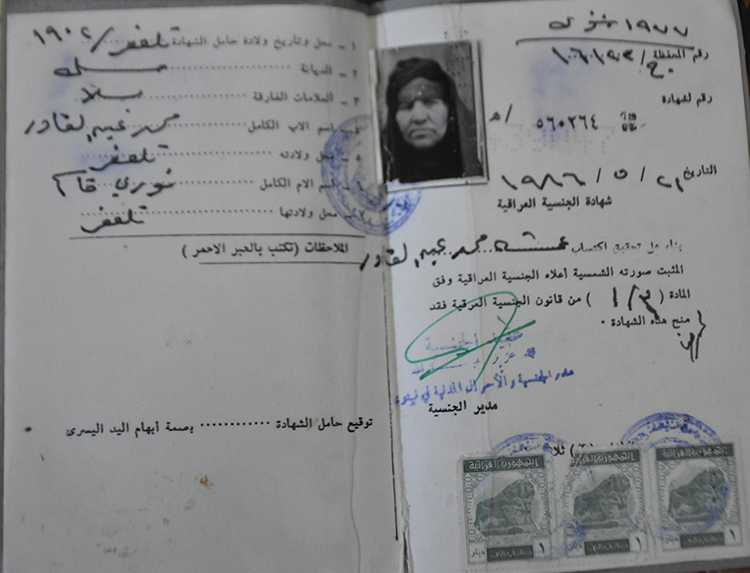 ١٩٧٧
رقم المحفظة / ج ١٠٦١٩٣
رقم لشهادة
٥٦٠٢٦٤ / هـ
التاريخ ٢١ / ٥ / ١٩٨٦
شهادة الجنسية العراقية
بناء على تحقيق اكتساب محمد عبد القادر
المثبت صورته الشمسية أعلاه الجنسية العراقية وفق
المادة ( ) من قانون الجنسية العرقية فقد
منح هذه الشهادة ٠
مدير الجنسية والأحوال المدنية في نينوى
مدير الجنسية
الجمهورية العراقية
١ دينار ١
الجمهورية العراقية
١ دينار ١
الجمهورية العراقية
١ دينار ١
١ ـ محل وتاريخ ولادة حامل الشهادة تلعفر / ١٩٠٢
٢ ـ الديانة مسلمة
٣ ـ العلامات الفارقة بلا
٤ ـ اسم الاب الكامل محمد عبد القادر
٥ ـ محل ولادته تلعفر
٦ ـ اسم الام الكامل نوري
٧ ـ محل ولادتها تلعفر
الملاحظات ( تكتب بالحبر الاحمر )
توقيع حامل الشهادة ٠٠٠٠٠٠٠٠٠٠٠٠ بصمة أبهام اليد اليسرى